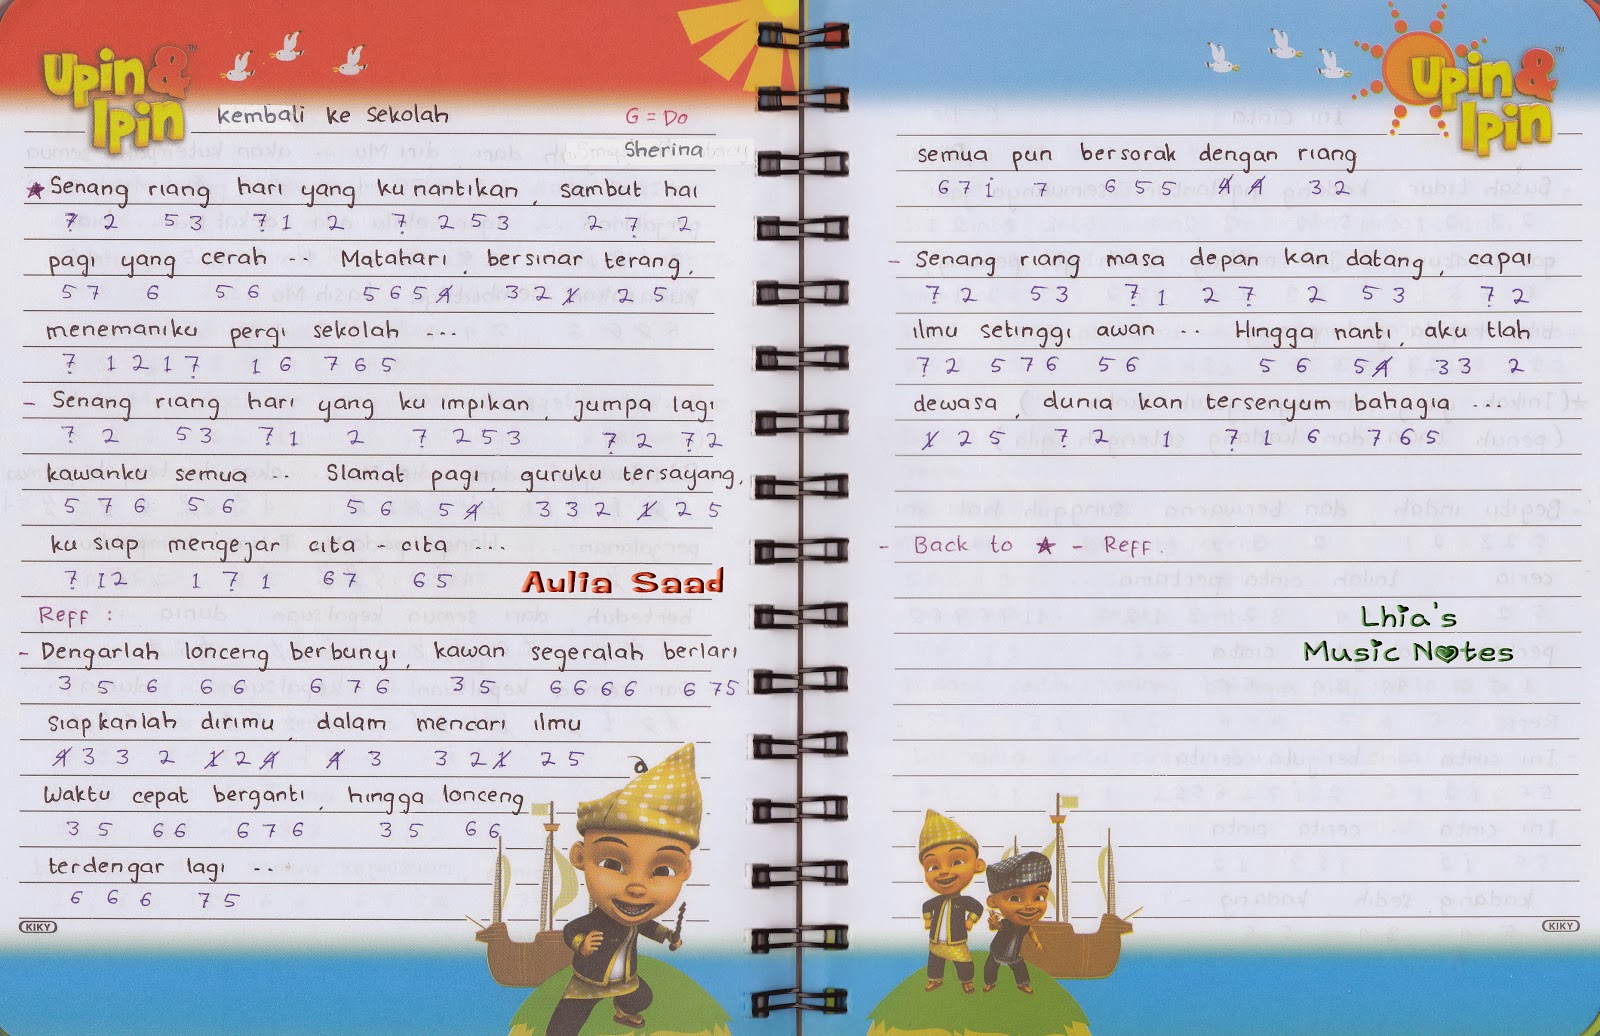 Upin & Ipin™
kembali ke sekolah G = Do
Sherina
★ Senang riang hari yang ku nantikan, sambut hai
7̣ 2 5 3 7̣ 1 2 7̣ 2 5 3 2 7̣ 2
pagi yang cerah -- Matahari, bersinar terang,
5 7 6 5 6 5 6 5 4̸ 3 2 1̸ 2 5
menemaniku pergi sekolah ---
7̣ 1 2 1 7̣ 1 6 7 6 5
- Senang riang hari yang ku impikan, jumpa lagi
7̣ 2 5 3 7̣ 1 2 7̣ 2 5 3 7̣ 2 7̣ 2
kawanku semua -- Slamat pagi, guruku tersayang,
5 7 6 5 6 5 6 5 4̸ 3 3 2 1̸ 2 5
ku siap mengejar cita - cita ---
7̣ 1 2 1 7̣ 1 6 7 6 5
Aulia Saad
Reff :
- Dengarlah lonceng berbunyi, kawan segeralah berlari
3 5 6 6 6 6 7 6 3 5 6 6 6 6 6 7 5
siapkanlah dirimu, dalam mencari ilmu
4̸ 3 3 2 1̸ 2 4̸ 4̸ 3 3 2 1̸ 2 5
Waktu cepat berganti, hingga lonceng
3 5 6 6 6 7 6 3 5 6 6
terdengar lagi --
6 6 6 7 5
KIKY
Upin & Ipin™
semua pun bersorak dengan riang
6 7 i 7 6 5 5 4̸ 4̸ 3 2
- Senang riang masa depan kan datang, capai
7̣ 2 5 3 7̣ 1 2 7̣ 2 5 3 7̣ 2
ilmu setinggi awan -- Hingga nanti, aku tlah
7̣ 2 5 7 6 5 6 5 6 5 4̸ 3 3 2
dewasa, dunia kan tersenyum bahagia ---
1̸ 2 5 7̣ 2 1 7̣ 1 6 7 6 5
- Back to ★ - Reff.
Lhia's
Music Notes
KIKY